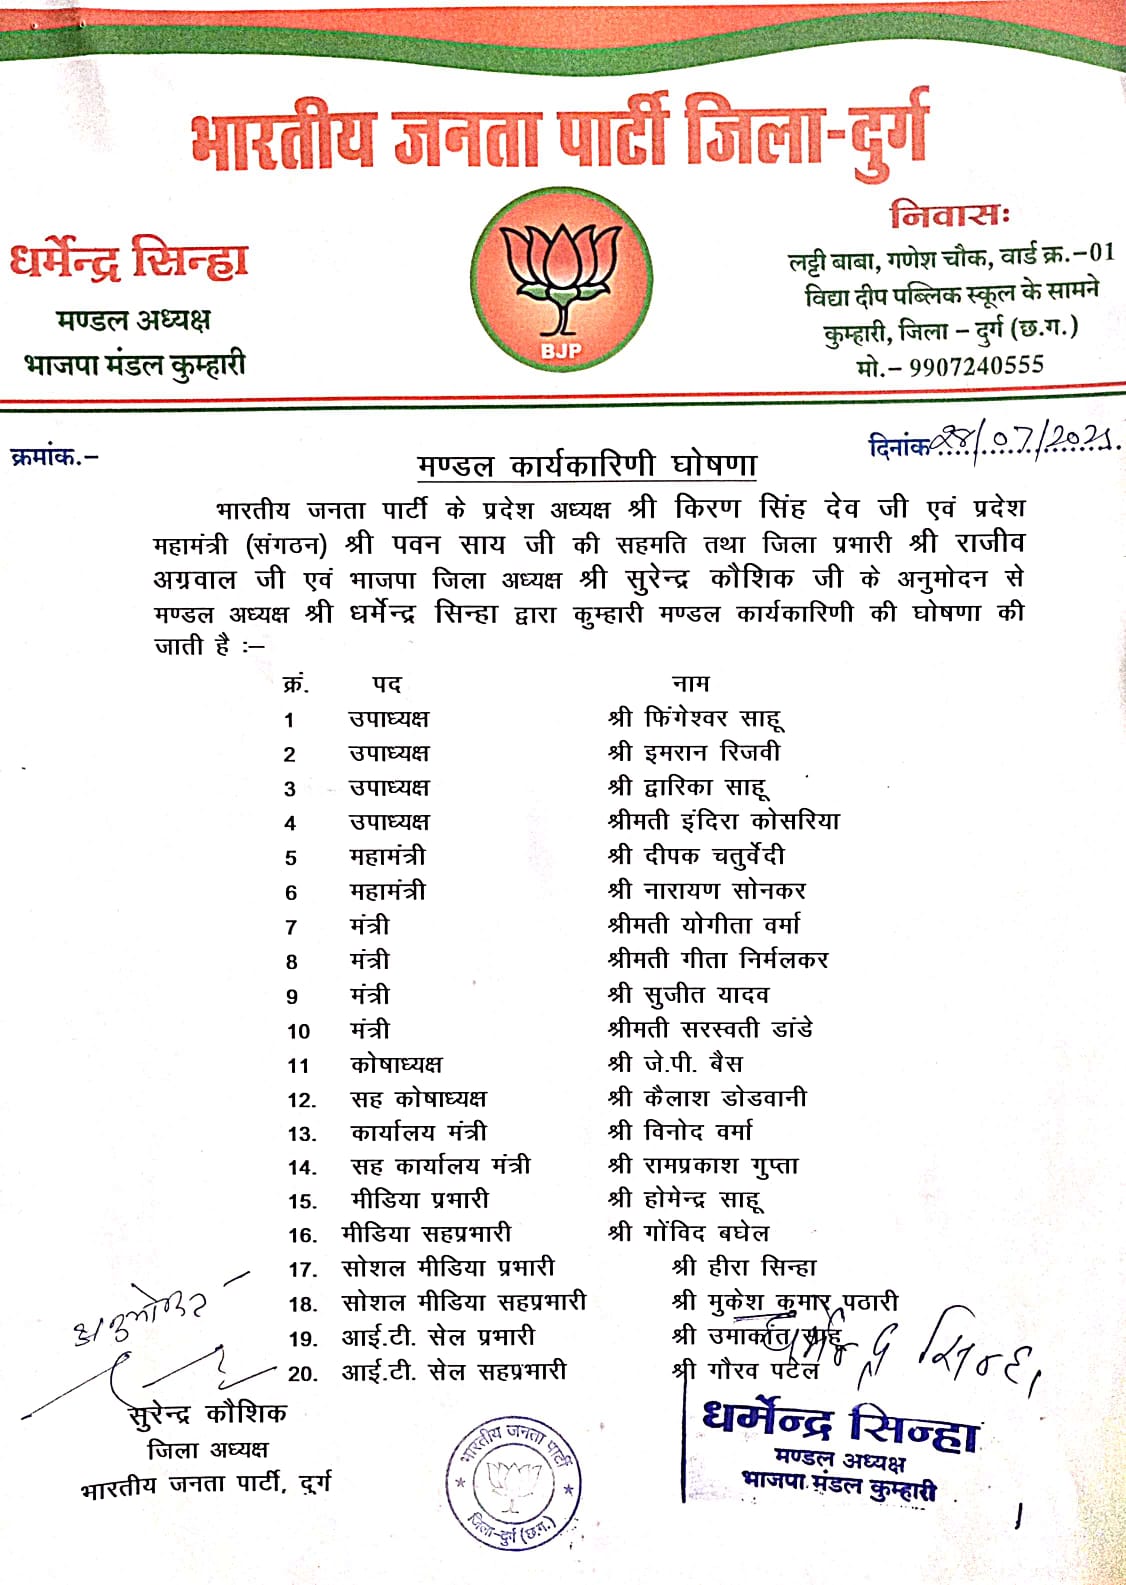 भारतीय जनता पार्टी जिला-दुर्ग
धर्मेन्द्र सिन्हा
मण्डल अध्यक्ष
भाजपा मंडल कुम्हारी
BJP
निवासः
लट्टी बाबा, गणेश चौक, वार्ड क्र.-01
विद्या दीप पब्लिक स्कूल के सामने
कुम्हारी, जिला – दुर्ग (छ.ग.)
मो.– 9907240555
क्रमांक.–
दिनांक 28/07/2025.
मण्डल कार्यकारिणी घोषणा
भारतीय जनता पार्टी के प्रदेश अध्यक्ष श्री किरण सिंह देव जी एवं प्रदेश
महामंत्री (संगठन) श्री पवन साय जी की सहमति तथा जिला प्रभारी श्री राजीव
अग्रवाल जी एवं भाजपा जिला अध्यक्ष श्री सुरेन्द्र कौशिक जी के अनुमोदन से
मण्डल अध्यक्ष श्री धर्मेन्द्र सिन्हा द्वारा कुम्हारी मण्डल कार्यकारिणी की घोषणा की
जाती है :–
क्रं. पद नाम
1 उपाध्यक्ष श्री फिंगेश्वर साहू
2 उपाध्यक्ष श्री इमरान रिजवी
3 उपाध्यक्ष श्री द्वारिका साहू
4 उपाध्यक्ष श्रीमती इंदिरा कोसरिया
5 महामंत्री श्री दीपक चतुर्वेदी
6 महामंत्री श्री नारायण सोनकर
7 मंत्री श्रीमती योगीता वर्मा
8 मंत्री श्रीमती गीता निर्मलकर
9 मंत्री श्री सुजीत यादव
10 मंत्री श्रीमती सरस्वती डांडे
11 कोषाध्यक्ष श्री जे.पी. बैस
12. सह कोषाध्यक्ष श्री कैलाश डोडवानी
13. कार्यालय मंत्री श्री विनोद वर्मा
14. सह कार्यालय मंत्री श्री रामप्रकाश गुप्ता
15. मीडिया प्रभारी श्री होमेन्द्र साहू
16. मीडिया सहप्रभारी श्री गोंविद बघेल
17. सोशल मीडिया प्रभारी श्री हीरा सिन्हा
18. सोशल मीडिया सहप्रभारी श्री मुकेश कुमार पठारी
19. आई.टी. सेल प्रभारी श्री उमाकांत साहू
20. आई.टी. सेल सहप्रभारी श्री गौरव पटेल
धर्मेन्द्र सिन्हा
सुरेन्द्र कौशिक
जिला अध्यक्ष
भारतीय जनता पार्टी, दुर्ग
भारतीय जनता पार्टी
जिला-दुर्ग (छ.ग.)
धर्मेन्द्र सिन्हा
मण्डल अध्यक्ष
भाजपा मंडल कुम्हारी